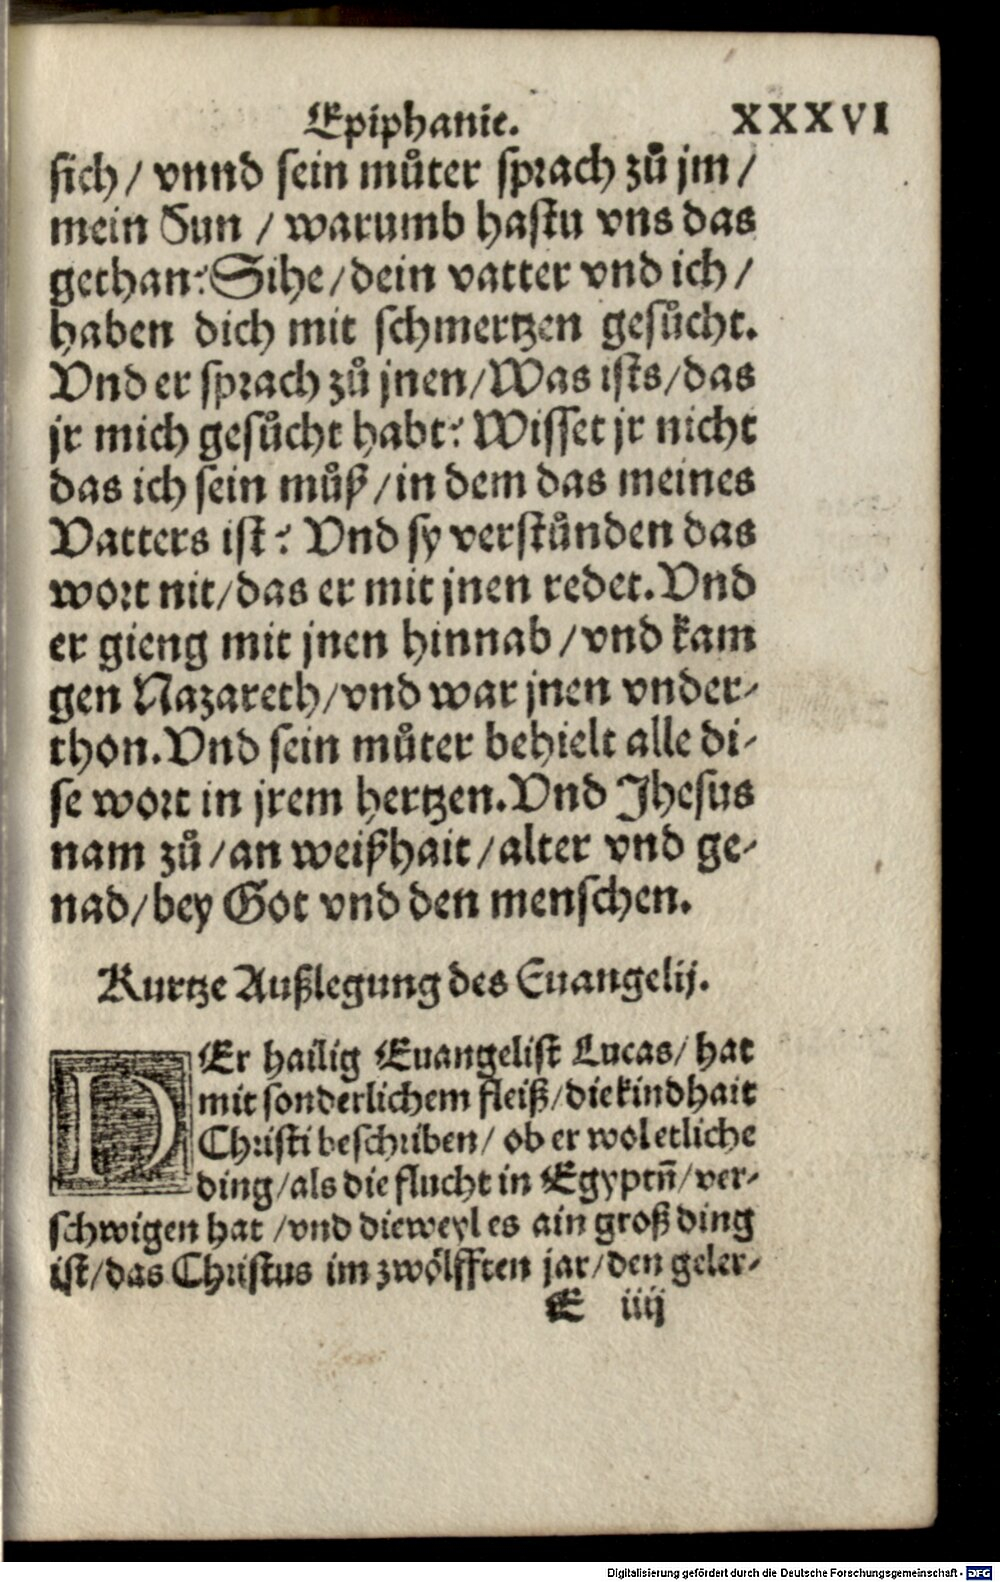 Epiphanie. XXXVI
sich / vnnd sein můter sprach zů jm /
mein Sun / warumb hastu vns das
gethan? Sihe / dein vatter vnd ich /
haben dich mit schmertzen gesůcht.
Vnd er sprach zů jnen / Was ists / das
jr mich gesůcht habt? Wisset jr nicht
das ich sein můß / in dem das meines
Vatters ist? Vnd sy verstůnden das
wort nit / das er mit jnen redet. Vnd
er gieng mit jnen hinnab / vnd kam
gen Nazareth / vnd war jnen vnder⸗
thon. Vnd sein můter behielt alle di⸗
se wort in jrem hertzen. Vnd Jhesus
nam zů / an weißhait / alter vnd ge⸗
nad / bey Got vnd den menschen.
Kurtze Außlegung des Euangelij.
DEr hailig Euangelist Lucas / hat
mit sonderlichem fleiß / die kindhait
Christi beschriben / ob er wol etliche
ding / als die flucht in Egyptn̄ / ver⸗
schwigen hat / vnd dieweyl es ain groß ding
ist / das Christus im zwölfften jar / den geler⸗
E iiij
Digitalisierung gefördert durch die Deutsche Forschungsgemeinschaft - DFG